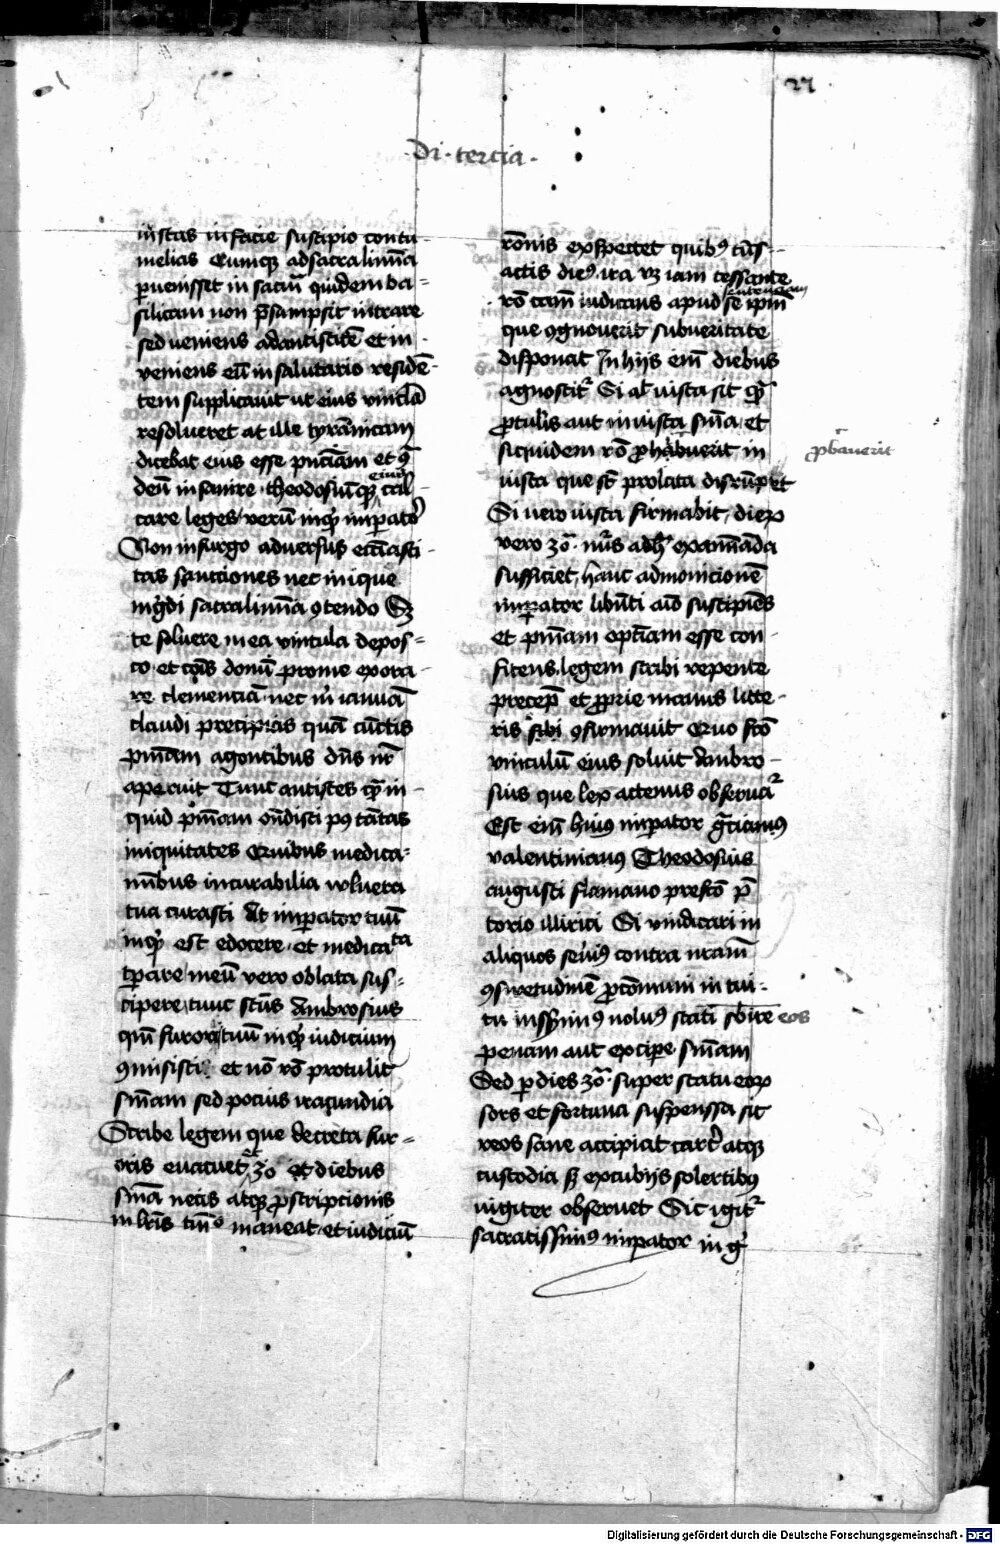 27
Di · tercia ·
iustas in facie suscipio contu
melias Cumq ad sacra limina
pervenisset in sacrum quidem ba
silicam non presampsit intrare
sed veniens ad antistitem et in
veniens eum in salutario residen
tem supplicavit ut eius vincla
resolveret at ille tyrannicam
dicebat eius esse presenciam et contra
deum insanire theodosiumq eiusque cal
care leges verum inquit imperator
Non insurgo adversus ecclesiasti
cas sanctiones nec inique
ingredi sacra limina contendo Sed
te solvere mea vincula depos
co et communis domini pro me exora
re clemenciam nec mihi ianuam
claudi precipias quam cunctis
penitenciam agentibus dominus noster
aperuit Tunc antistes quam in
quid penitenciam ostendisti post tantas
iniquitates Quibus medica
minibus incurabilia vulnera
tua curasti At imperator tuum
inquit est edocere et medicata
temperare meum vero oblata sus
cipere tunc sanctus Ambrosius
quoniam furori tuum inquit iudicium
commisisti et non racio protulit
sentenciam sed pocius iracundia
Scribe legem que decreta fur
oris evacuet ut 30 et diebus
sentencia necis atque proscriptionis
in literis tantummodo maneat et iudicium
racionis exspectet quibus trans
actis diebus ira videlicet iam cessante
racio causam iudicans apud se ipsam sentenciam
que cognoverit sub veritate
disponat In hiis enim diebus
agnoscitur Si aut iusta sit quam
protulis aut iniusta sentencia et
siquidem racio prohabuerit in
probaverit
iusta que sunt prolata disrumpet
Si vero iusta firmabit dierum
vero 30 numerus ad hec examinanda
sufficiet hanc admonicionem
imperator libenti animo suscipiens
et primam optimam esse con
fitens legem scribi repente
precepit et proprie manus litte
ris sibi confirmavit Quo facto
vinculum eius solvit Ambro
sius que lex actenus observatur
Est enim huius imperator gracianus
valentinianus Theodosius
augusti flamano prefecto pre
torio illirici Si vindicari in
aliquos severius contra nostram
consuetudinem pro communi in tui
tu iusserimus nolumus statim subire eos
penam aut excipere sentenciam
Sed per dies 30 super statu eorum
sors et fortuna suspenssa sit
reos sane accipiat carcer atque
custodia sed excubiis solertibus
vigiter observet Sic igitur
sacratissimus imperator in gre
Digitalisierung gefördert durch die Deutsche Forschungsgemeinschaft - DFG